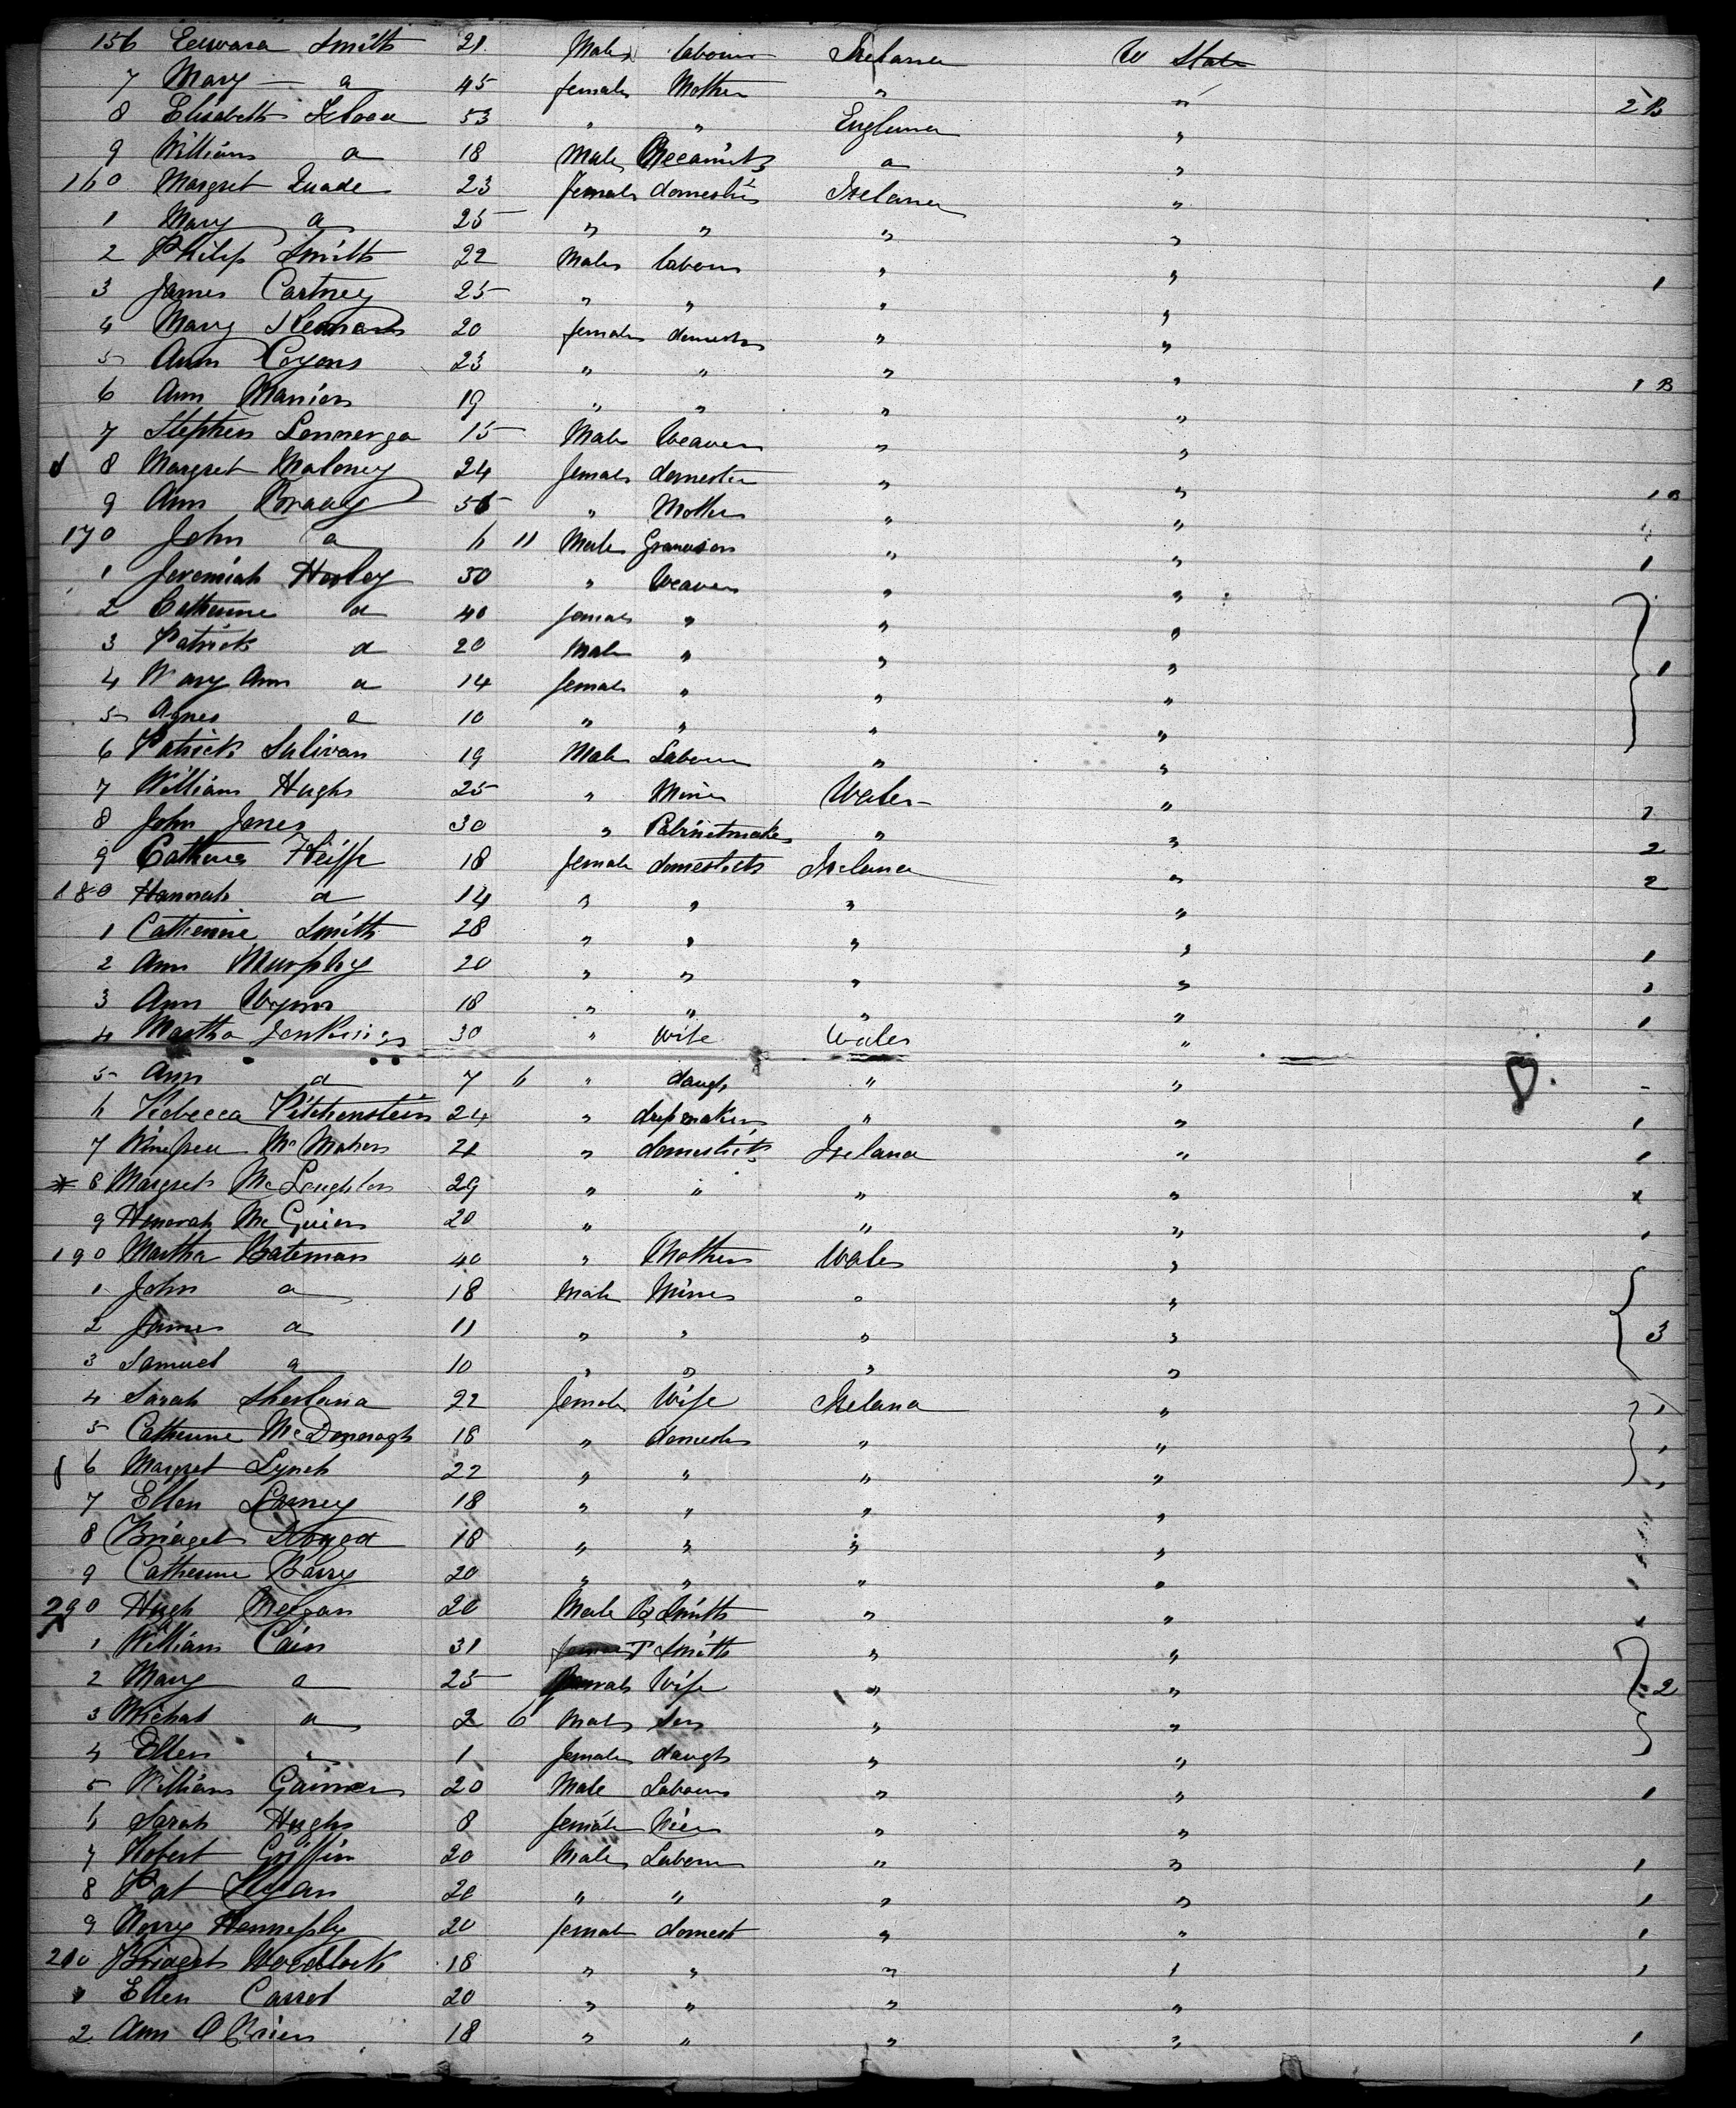 156 Edward Smith 21 Male labour Ireland U State
7 Mary d 45 female Mother " " 2 B
8 Elisabeth 53 " " England "
9 William d 18 Male d "
160 Margret Quade 23 female domestic Ireland "
1 Mary d 25 " " " "
2 Philip Smith 22 Male labour " " 1
3 James Cartney 25 " " " "
4 Mary 20 female domestic " "
5 Ann Coyens 23 " " " " 1 B
6 Ann Manion 19 " " " "
7 Stephen 15 Male Weaver " "
8 Margret Maloney 24 female domestic " " 1 B
9 Ann Brady 56 " Mother " "
170 John d 6 11 Male Grandson " " 1
1 Jeremiah Hoyley 50 " Weaver " "
2 Catherine d 40 female " " "
3 Patrick d 20 Male " " " 1
4 Mary Ann d 14 female " " "
5 Agnes d 10 " " " "
6 Patrick Sulivan 19 Male Labour " "
7 William Hughs 25 " Miner Wales " 2
8 John Jones 30 " Cabinetmaker " " 2
9 Catherine 18 female domestick Ireland " 2
180 Hannah d 14 " " " "
1 Catherine Smith 28 " " " " 1
2 Ann Murphy 20 " " " " 1
3 Ann Wynn 18 " " " " 1
4 Martha Jenkins 30 " Wife Wales "
5 Ann d 7 6 " daugh " " -
6 Rebecca Pitchenstein 24 " " " 1
7 McMahon 21 " domestick Ireland " 1
* 8 Margret McLoughlin 29 " " " " x
9 Honorah McGuier 20 " " " 1
190 Martha Bateman 40 " Mother Wales "
1 John d 18 Male Miner " "
2 James d 11 " " " " 3
3 Samuel d 10 " " " "
4 Sarah 22 female Wife Ireland " 1
5 Catherine McDonnogh 18 " domestic " " 1
6 Margret Lynch 22 " " " " 1
7 Ellen 18 " " " "
8 Bridget 18 " " " "
9 Catherine Barry 20 " " " "
290 Hugh Megan 20 Male B Smith " "
1 William Cain 31 T Smith " "
2 Mary d 25 female Wife " " 2
3 Michal d 2 6 Male Son " "
4 Ellen " 1 female daugh " "
5 William Gainer 20 Male Labour " " 1
6 Sarah Hughs 8 female Niece " "
7 Robert Griffin 20 Male Labour " " 1
8 Pat Ryan 20 " " " " 1
9 Hennesly 20 female domest " " 1
210 Bridget Woodlock 18 " " " " 1
1 Ellen Carrol 20 " " " "
2 Ann O Brien 18 " " " " 1